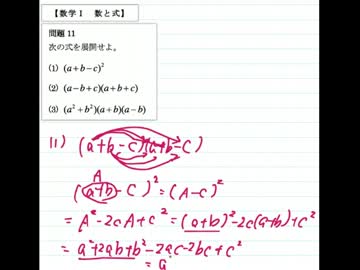 【数学Ⅰ 数と式】
問題 11
次の式を展開せよ。
(1) (a+b−c)²
(2) (a−b+c)(a+b+c)
(3) (a²+b²)(a+b)(a−b)
11) (a+b-c)(a+b-C)
A
(a+b-C)² = (A-C)²
= A²-2cA+c² = (a+b)²-2c(a+b)+c²
= a²+2ab+b²-2ac-2bc+c²
= a